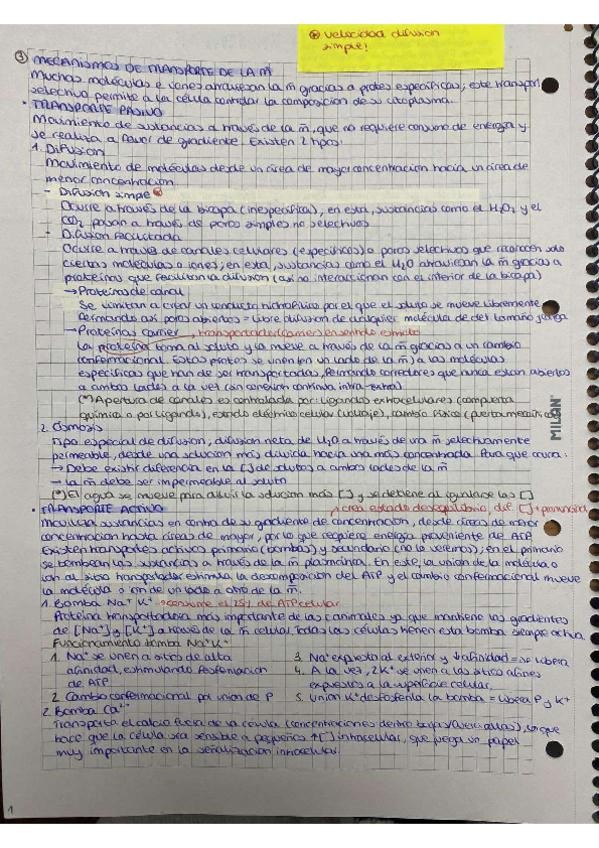 ⊛ velocidad difusion
simple!
① MECANISMOS DE TRANSPORTE DE LA m̄
Muchas moléculas e iones atraviesan la m̄ gracias a protes específicas; este transport
selectivo permite a la célula controlar la composición de su citoplasma.
• TRANSPORTE PASIVO
Movimiento de sustancias a través de la m̄, que no requiere consumo de energía y
se realiza a favor de gradiente. Existen 2 tipos:
1. Difusión
Movimiento de moléculas desde un área de mayor concentración hacia un área de
menor concentración
- Difusión simple ⊛
Ocurre a través de la bicapa (inespecífica), en esta, sustancias como el H₂O₂ y el
CO₂ pasan a través de poros simples no selectivos
- Difusión Facilitada
Ocurre a través de canales celulares (específicos) o poros selectivos que reconocen solo
ciertas moléculas o iones; en esta, sustancias como el H₂O atraviesan la m̄ gracias a
proteínas que facilitan la difusión (así no interaccionan con el interior de la bicapa)
→ Proteínas de canal
Se limitan a crear un conducto hidrofílico por el que el soluto se mueve libremente
formando así poros abiertos = libre difusión de cualquier molécula de del tamaño y carga
→ Proteínas carrier, transportador (carrier) en sentido estricto
La proteína toma al soluto y la mueve a través de la m̄ gracias a un cambio
conformacional. Estas protes se unen (en un lado de la m̄) a las moléculas
específicas que han de ser transportadas, formando corredores que nunca están abiertos
a ambos lados a la vez (sin conexión continua intra-extra)
(*) Apertura de canales es controlada por: ligandos extracelulares (compuerta
química o por ligando), estado eléctrico celular (voltaje), cambio físico (puerta mecánica)
2. Osmosis
Tipo especial de difusión, difusión neta de H₂O a través de una m̄ selectivamente
permeable, desde una solución más diluida hacia una más concentrada. Para que ocurra:
→ Debe existir diferencia en la [] de solutos a ambos lados de la m̄
→ La m̄ debe ser impermeable al soluto
(*) El agua se mueve para diluir la solución más [] y se detiene al igualarse las []
• TRANSPORTE ACTIVO crea estado desequilibrio, dif [] + pronunciad
Moviliza sustancias en contra de su gradiente de concentración, desde áreas de menor
concentración hasta áreas de mayor, por lo que requiere energía proveniente de ATP
Existen transportes activos primario (bombas) y secundario (no lo veremos); en el primario
se bombean las sustancias a través de la m̄ plasmática. En este, la unión de la molécula o
ion al sitio transportador estimula la descomposición del ATP y el cambio conformacional mueve
la molécula o ion de un lado a otro de la m̄.
1. Bomba Na⁺ K⁺ → consume el 25% de ATP celular
Proteína transportadora más importante de las c.animales ya que mantiene los gradientes
de [Na⁺] y [K⁺] a través de la m̄ celular. Todas las células tienen esta bomba siempre activa.
Funcionamiento bomba Na⁺K⁺
1. Na⁺ se unen a sitios de alta
afinidad, estimulando fosforilación
de ATP
2. Cambio conformacional por unión de P
3. Na⁺ expuesto al exterior y ↓afinidad = se libera
4. A la vez, 2K⁺ se unen a los sitios afines
expuestos a la superficie celular.
5. Unión K⁺ desfosforila la bomba = libera P y K⁺
2. Bomba Ca²⁺
Transporta el calcio fuera de la célula (concentraciones dentro bajas/fuera altas), lo que
hace que la célula sea sensible a pequeños ↑[] intracelular, que juega un papel
muy importante en la señalización intracelular.
MILAN
1